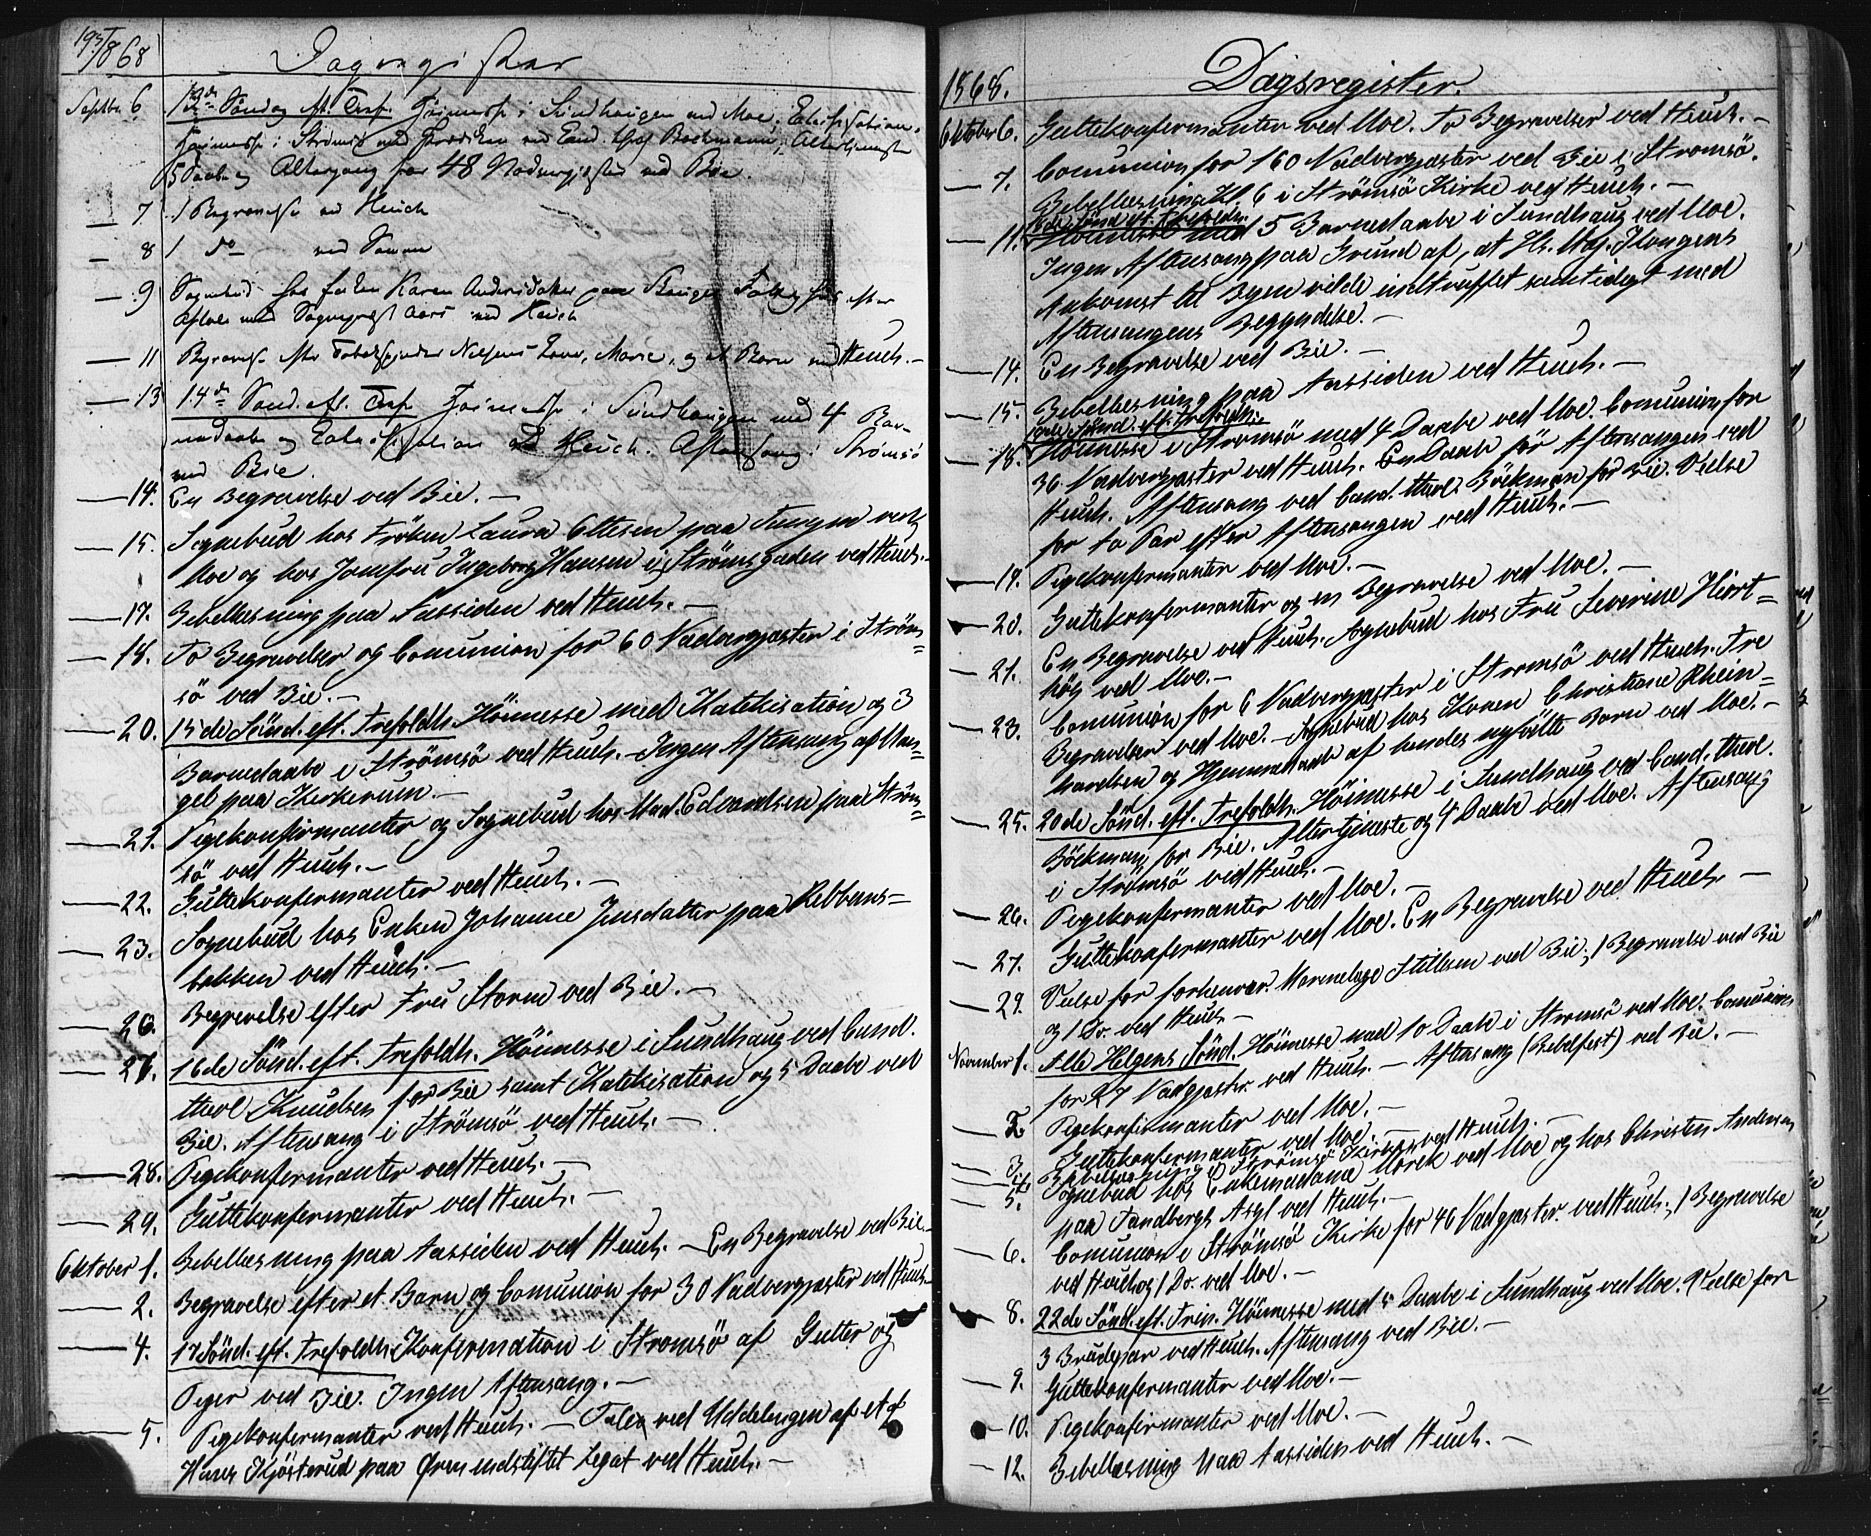 193/1868
Dagregister
Septbr. 6. 13de Søndag eft. Tref. Høimesse i Sundhaugen ved Moe, Catechisation.
Høimesse i Strømsø med Præken ved Cand. theol Bøckmann, Altertjeneste
5 Daabe og Altergang for 48 Nadvergjæster ved Bie.
— 7 1 Begravelse ved Heuch
— 8 1 do ved Samme
— 9 Sognebud hos Enken Karen Andersdatter paa Fattighus efter
Aftale med Sognepræst Aars ved Heuch
— 11 Begravelse eftr Nielsens Kone, Marie, og et Barn ved Heuch. —
— 13 14de Sønd. eft. Tref. Høimesse i Sundhaugen med 4 Bar-
nedaabe og Catechisation ved Heuch. Aftensang i Strømsø
ved Bie.
— 14. En Begravelse ved Bie. —
— 15. Sognebud hos Frøken Laura Ottesen paa Tangen ved
Moe og hos Jomfru Ingeborg Hansen i Strømsgaden ved Heuch. —
— 17. Bibellæsning paa Tassiden ved Heuch. —
— 18. To Begravelser og Comunion for 60 Nadvergjæster i Strøm=
sö ved Bie. —
— 20. 15de Sönd. eft. Trefoldh. Höimesse med Katekisation og 3
Barnedaabe i Strömsö ved Heuch. — Ingen Aftensang af Man=
gel paa Kirkerum. —
— 21. Pigekonfirmanter og Sognebud hos Mad. Edvardsen paa Ström=
sö ved Heuch. —
— 22. Guttekonfermanter ved Heuch. —
— 23. Sognebud hos Enken Johanne Jensdatter paa Rebbans=
bakken ved Heuch. —
— 26. Begravelse efter Fru Storm ved Bie. —
— 27. 16de Sönd. eft. Trefoldh. Höimesse i Sundhaug ved Cand.
theol Knudsen for Bie samt Katekisation og 5 Daabe ved
Bie. Aftensang i Strömsö ved Heuch. —
— 28. Pigekonfermanter ved Heuch. —
— 29. Guttekonfermanter ved Heuch. —
Oktober 1. Bibellæsning paa Tassiden ved Heuch. — En Begravelse ved Bie. —
— 2. Begravelse efter et Barn og Comunion for 30 Nadvergjæster ved Heuch —
— 4. 17 Sönd. eft. Trefoldh. Konfermation i Stromsö af Gutter og
Piger ved Bie. Ingen Aftensang. —
— 5. Pigekonfermanter ved Heuch. — Tale ved Uddelingen af et af
Hans Kjösterud paa Øren indstiftet Legat ved Heuch. —
1868. Dagsregister.
Oktober 6. Guttekonfermanter ved Moe. To Begravelser ved Heuch. —
— 7. Comunion for 160 Nadvergjæster ved Bie i Stromsö.
Bibellæsning Kl. 6 i Strömsö Kirke ved Heuch. —
18de Sönd. eft. Trefoldh.
— 11. Höimesse med 5 Barnedaabe i Sundhaug ved Moe.
Ingen Aftensang paa Grund af, at Hs. Maj. Kongens
Ankomst til Byen vilde indtruffet samtidigt med
Aftensangens Begyndelse. —
— 14. En Begravelse ved Bie. —
— 15. Bibellæsning paa Tassiden ved Heuch. —
19de Sönd. eft. Trefoldh.
— 18. Höimesse i Strömsö med 4 Daabe ved Moe. Comunion for
36 Nadvergjæster ved Heuch. En Daab för Aftensangen ved
Heuch. Aftensang ved Cand. theol. Böckman for Bie. Vielse
for to Par efter Aftensangen ved Heuch. —
— 19. Pigekonfermanter ved Moe. —
— 20. Guttekonfermanter og en Begravelse ved Moe. —
— 21. En Begravelse ved Heuch. Sognebud hos Fru Severine Hiort=
höy ved Moe. —
— 23. Comunion for 6 Nadvergjæster i Stromsö ved Heuch. Tre
Begravelser ved Moe. — Sognebud hos Konen Christiane Rhein=
hardsen og Hjemmedaab af hendes nyfödte Barn ved Moe. —
— 25. 20de Sönd. eft. Trefoldh. Höimesse i Sundhaug ved Cand. theol.
Böckmann for Bie. Altertjeneste og 4 Daabe ved Moe. Aftensang
i Strömsö ved Heuch. —
— 26. Pigekonfermanter ved Moe. —
— 27. Guttekonfermanter ved Moe. En Begravelse ved Heuch —
— 29. Vielse for forhenvær. Stillesen ved Bie; 1 Begravelse ved Bie
og 1 Do. ved Heuch —
November 1. Alle Helgens Sönd. Höimesse med to Daabe i Stromsö ved Moe. Comunion
for 27 Nadvgjæster ved Heuch. — Aftensang (Bibelfest) ved Bie. —
— 2 Pigekonfirmanter ved Moe. —
— 3. Guttekonfermanter ved Moe. —
— 4. Bibellæsning i Strömsö Kirke ved Heuch. —
— 5. Sognebud hos Enkemadame Mörck ved Moe og hos Christen Andersen
paa Tandbergs Asyl ved Heuch. —
— 6. Comunion i Strömsö Kirke for 46 Nadvgjæster ved Heuch; 1 Begravelse
ved Heuch og 1 Do. ved Moe. —
— 8. 22de Sönd. eft. Trin. Höimesse med 5 Daabe i Sundhaug ved Moe. Vielse for
3 Brudepar ved Heuch. Aftensang ved Bie. —
— 9. Guttekonfermanter ved Moe. —
— 10. Pigekonfirmanter ved Moe. —
— 12. Bibellæsning paa Tassiden ved Heuch. —